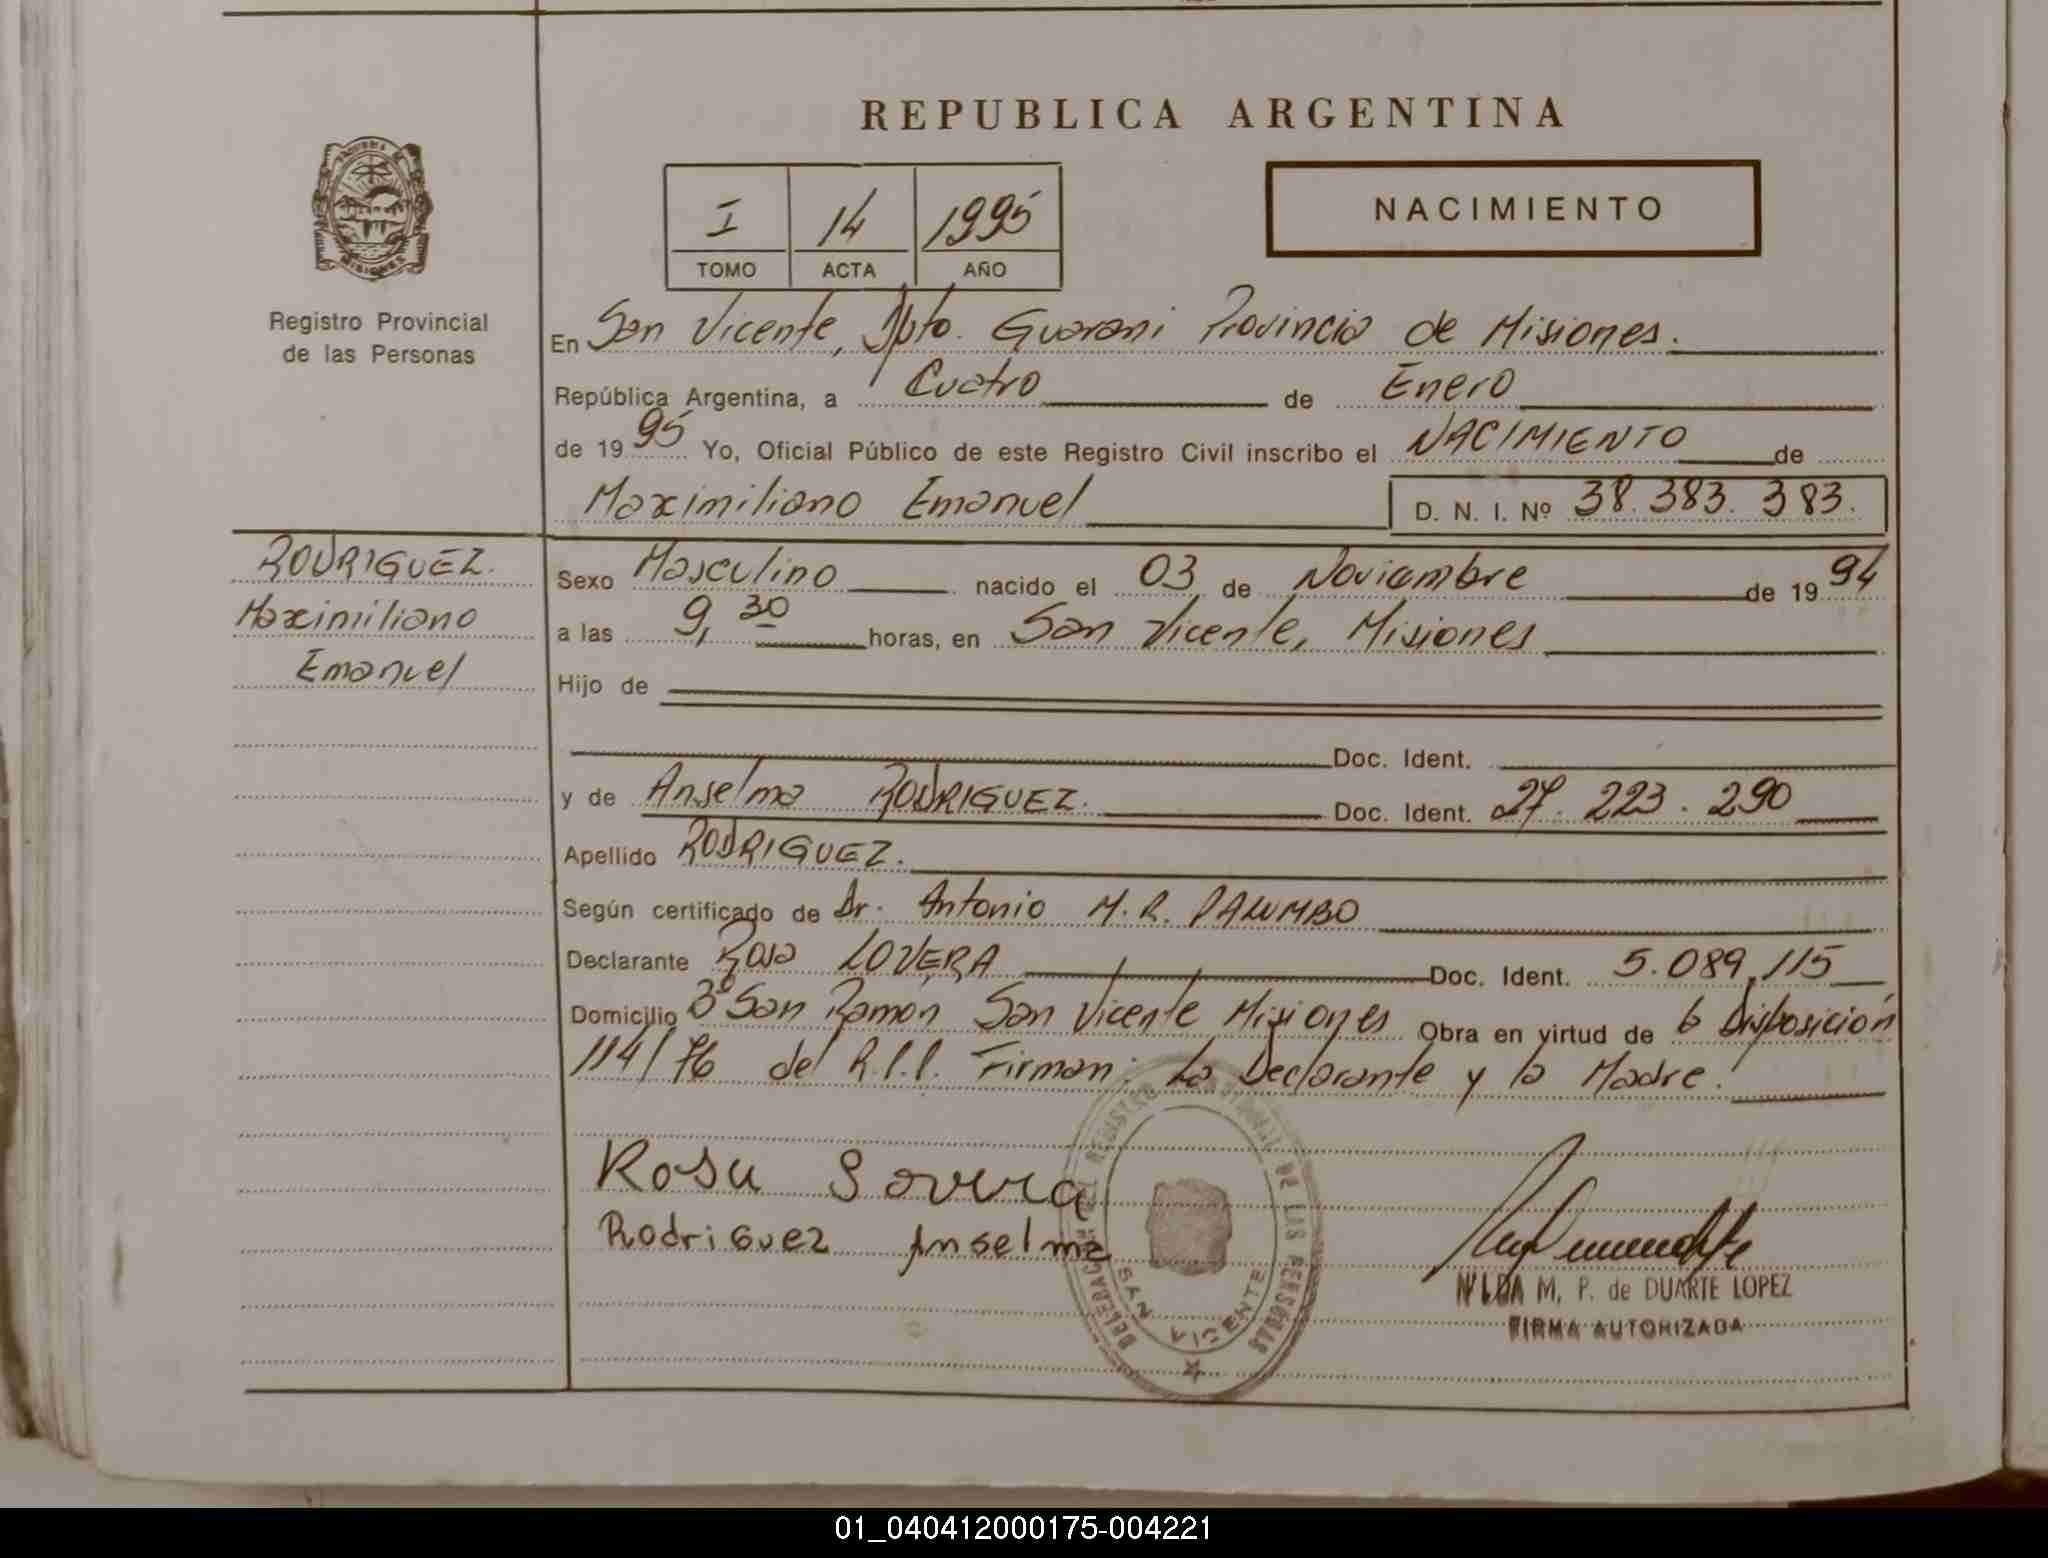 REPUBLICA ARGENTINA
MISIONES
Registro Provincial
de las Personas
I 14 1995
TOMO ACTA AÑO
NACIMIENTO
En San Vicente, Dpto. Guarani Provincia de Misiones.
República Argentina, a Cuatro de Enero
de 1995 Yo, Oficial Público de este Registro Civil inscribo el NACIMIENTO de
Maximiliano Emanuel D. N. I. Nº 38.383.383.
RODRIGUEZ.
Maximiliano
Emanuel
Sexo Masculino nacido el 03 de Noviembre de 1994
a las 9,30 horas, en San Vicente, Misiones
Hijo de
Doc. Ident.
y de Anselma RODRIGUEZ. Doc. Ident. 27.223.290
Apellido RODRIGUEZ.
Según certificado de Dr. Antonio M. R. PALUMBO
Declarante Rosa LOVERA Doc. Ident. 5.089.115
Domicilio Bº San Ramón San Vicente Misiones Obra en virtud de la Disposición
114/76 del R.P.P. Firman: La Declarante y la Madre.
Rosa
Rodriguez Anselma
DELEGACION DEL REGISTRO PROVINCIAL DE LAS PERSONAS
SAN VICENTE
NILDA M. P. de DUARTE LOPEZ
FIRMA AUTORIZADA
01_040412000175-004221